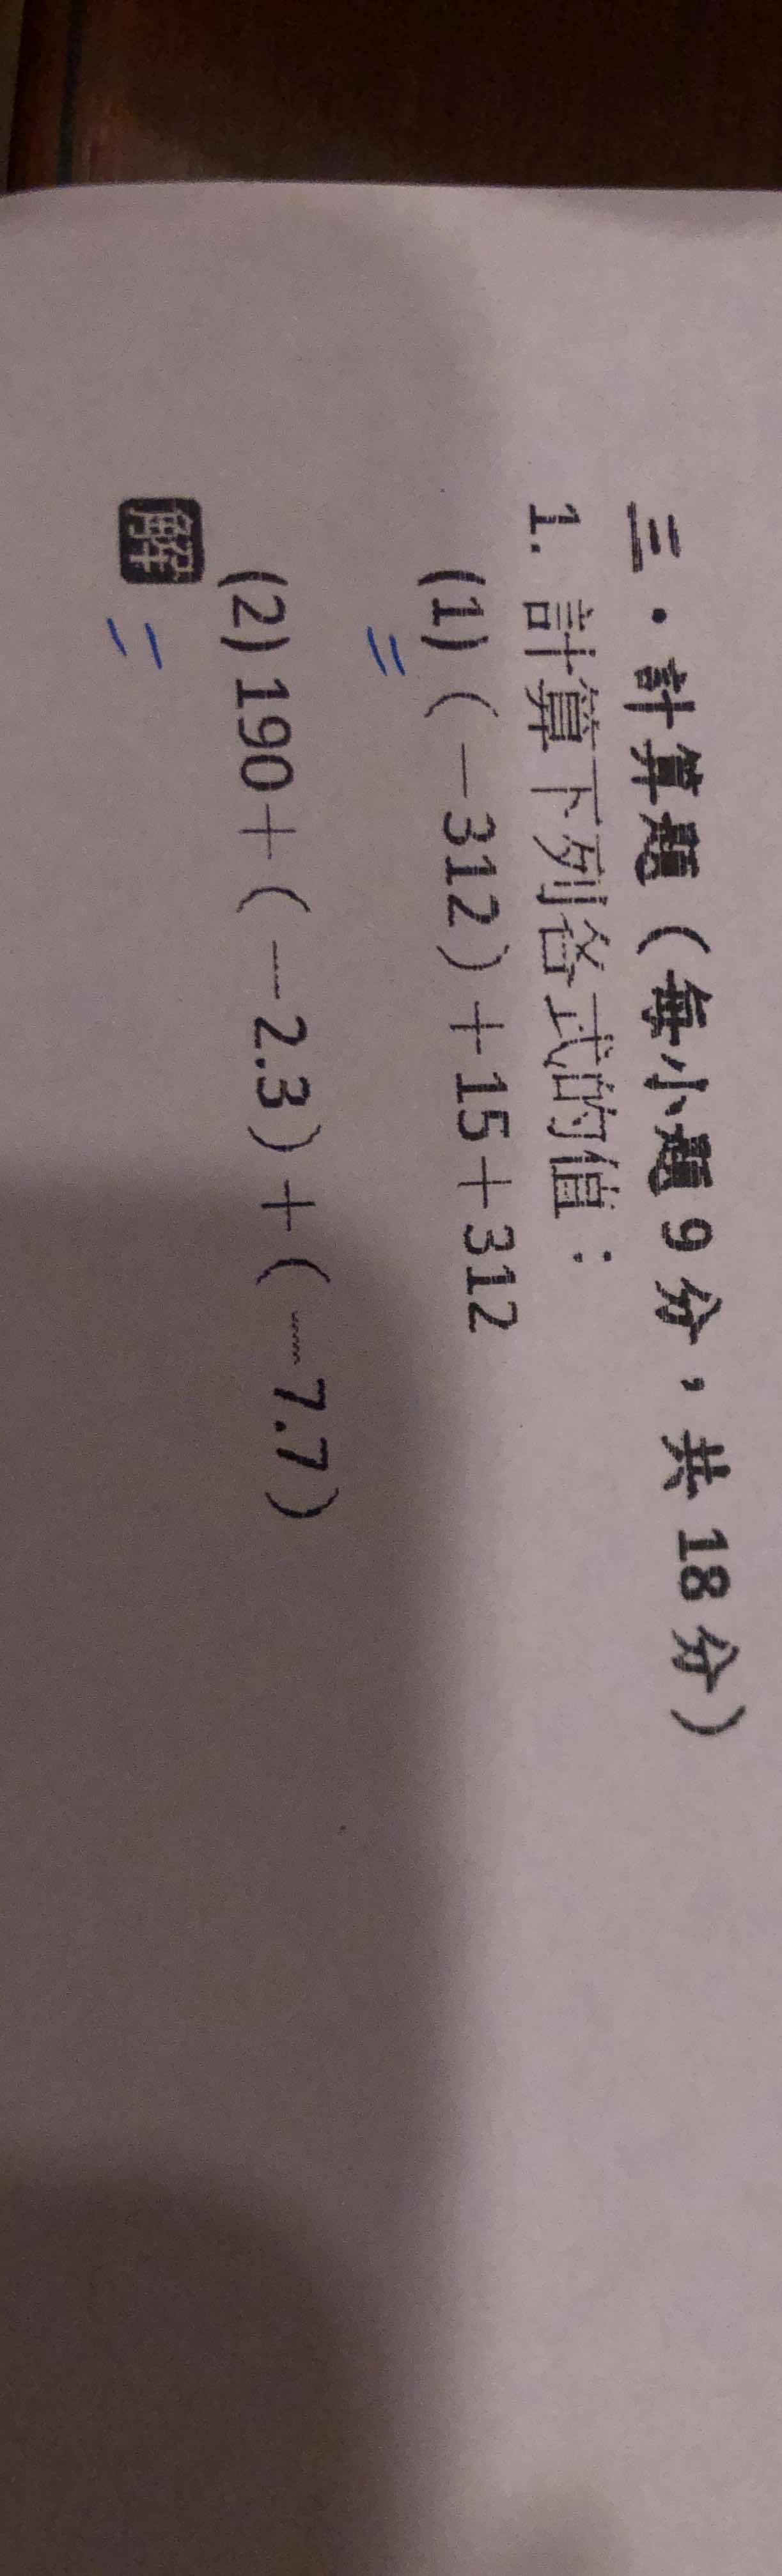 三．計算題（每小題9分，共18分）
1. 計算下列各式的值：
(1)（−312）＋15＋312
=
(2) 190＋（−2.3）＋（−7.7）
解 =